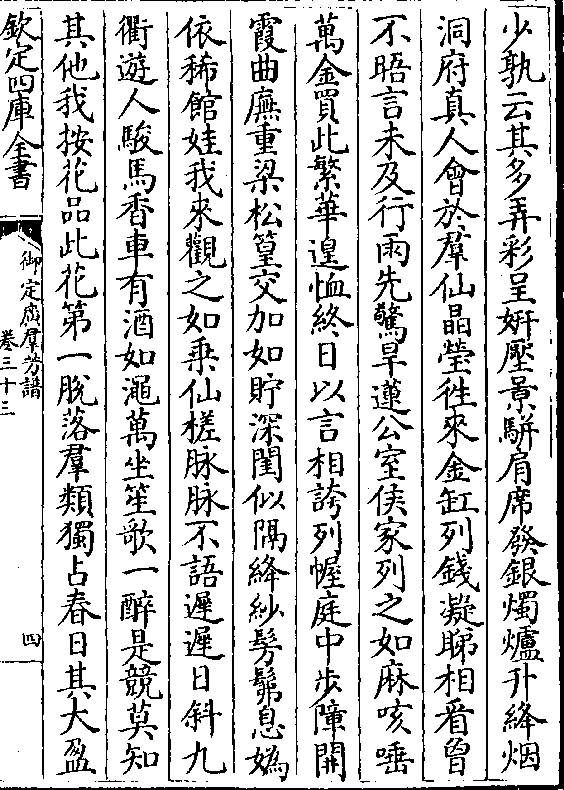 少孰云其多弄彩呈妍壓景駢肩席發銀燭爐升絳烟
洞府真人會於羣仙晶瑩往來金缸列錢凝睇相看曾
不晤言未及行雨先驚旱蓮公室侯家列之如麻咳唾
萬金買此繁華遑恤終日以言相誇列幄庭中步障開
霞曲廡重梁松篁交加如貯深閨似隔絳紗髣髴息媯
依稀館娃我來觀之如乗仙槎脉脉不語遲遲日斜九
衢遊人駿馬香車有酒如澠萬坐笙歌一醉是競莫知
其他我按花品此花第一脫落羣類獨占春日其大盈
欽定四庫全書
御定廣羣芳譜
卷三十三
四